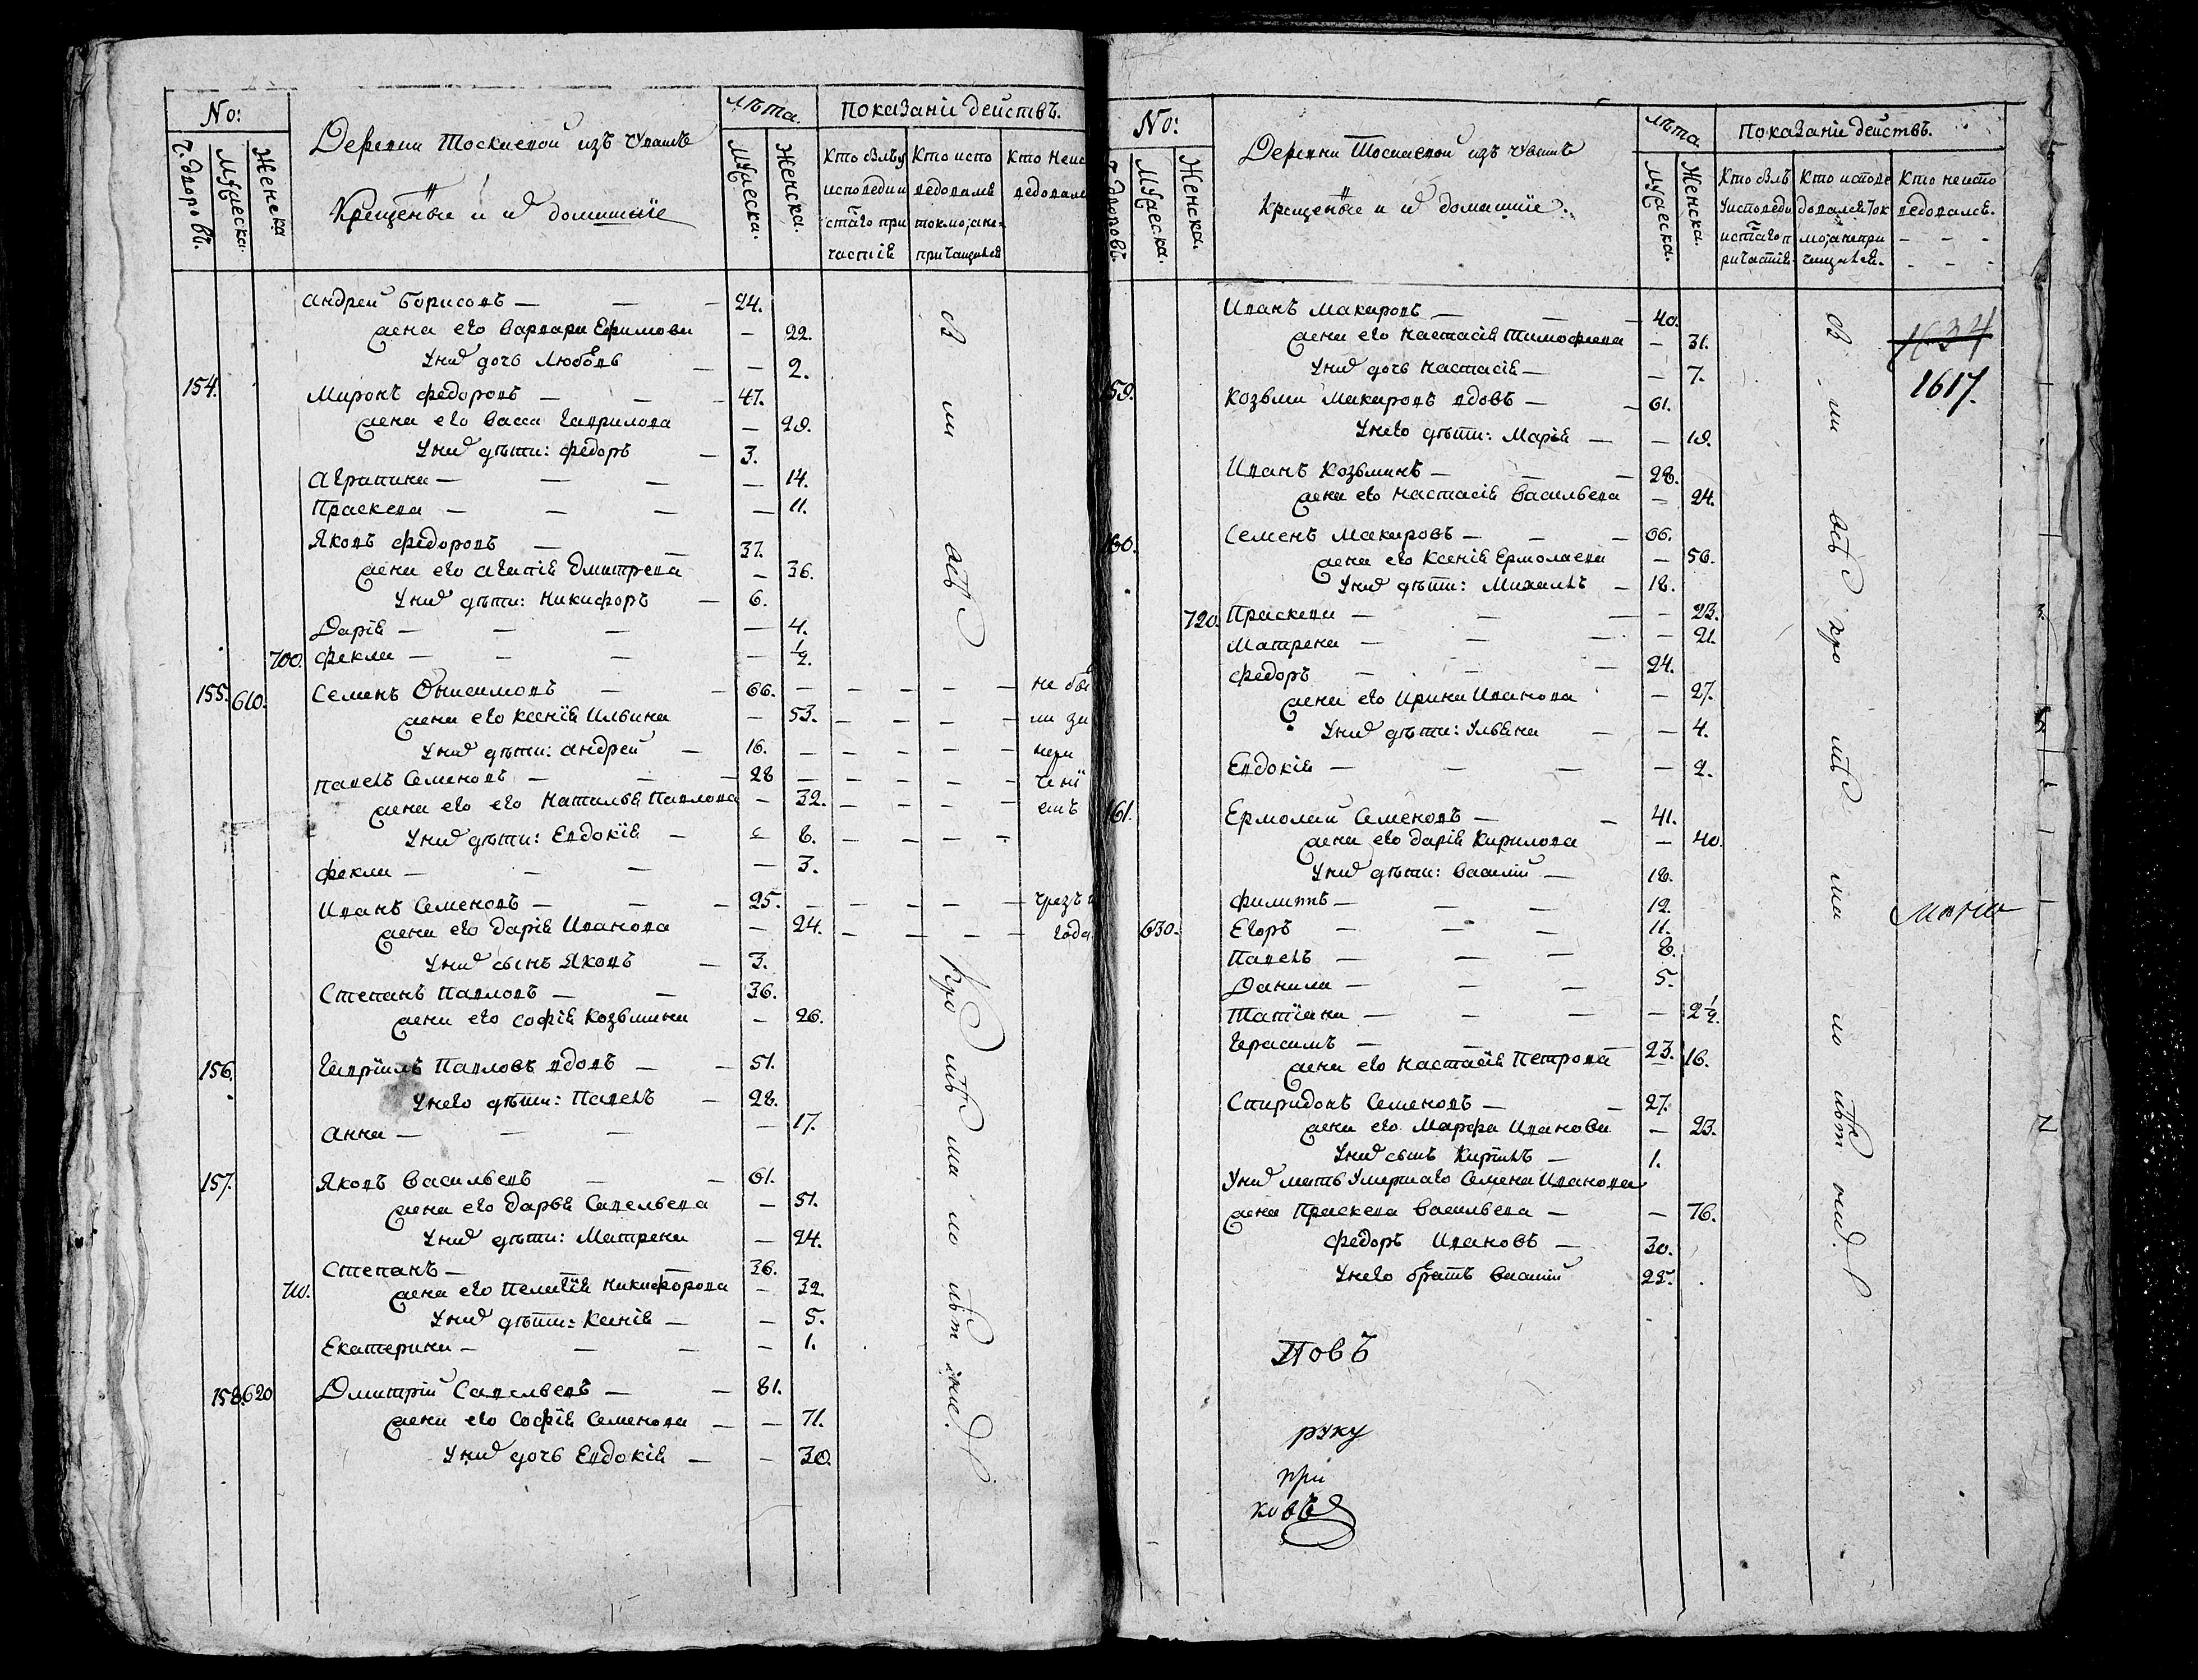 No:
Деревни Тоскаевой изъ Чувашъ
Крещеные и их домашніе
лѣта.
Показаніи действъ.
Ч: дворовъ.
Мужеска.
Женска
Мужеска.
Женска.
Кто былъ у
исповеди и
стаго при
частія
Кто испо
ведовался
токмо, а не
причащался
Кто Неис
ведовалс
Андрей Борисовъ — — — 24.
жена его Варвара Ефимова — 22.
У них дочь Любовь — — 2.
154. Миронъ Федоровъ — — — 47.
жена его Васса Гаврилова — 29.
У них дѣти: Федоръ — 3.
Агрипина — — — — 14.
Праскева — — — — 11.
Яковъ Федоровъ — — 37.
жена его Агапія Дмитрева — 36.
У них дѣти: Никифоръ — 6.
Дарія — — — — 4.
700. Фекла — — — — 1/2.
155. 610. Семенъ Онисимовъ — — 66. — — — — — не бы
жена его Ксенія Ильина — 53. — — — — ли за
У них дѣти: Андрей — 16. — — — — — нера
Павелъ Семеновъ — — — 28 — — — — — чені
жена его его Наталья Павлова — 32. — — — — емъ
У них дѣти: Евдокія — — 8. — — — —
Фекла — — — — 3.
Иванъ Семеновъ — — — 25. — — — — — чрезъ
жена его Дарія Иванова — 24. — — — — года
У них сынъ Яковъ — 3.
Степанъ Павловъ — — 36.
жена его Софія Козьмина — 26.
156. Гавріилъ Павловъ вдовъ — — 51.
У него дѣти: Павелъ — 28.
Анна — — — — 17.
157. Яковъ Васильевъ — — 61.
жена его Дарья Савельева — 51.
У них дѣти: Матрена — 24.
Степанъ — — 36.
710. жена его Пелагія Никифорова — 32.
У них дѣти: Ксенія — — 5.
Екатерина — — — — 1.
158. 620 Дмитрій Савельевъ — — 81.
жена его Софія Семенова — — 71.
У них дочь Евдокія — — 30.
No:
Деревни Тоскаевой изъ чувашъ
Крещеные и их домашніе.
лѣта
Показаніи действъ.
Ч. дворовъ.
Мужеска.
Женска.
Мужеска.
Женска.
Кто былъ
У исповеди
и стаго п
ричастія.
Кто испове
довался ток
мо, а не при
чащался.
Кто не испо
ведовался.
Иванъ Макаровъ — — — 40.
жена его Настасія Тимофеева — 31.
У них дочь Настасія — — 7.
1634
1617.
159. Козьма Макаровъ вдовъ — — 61.
У него дѣти: Марія — — 19.
Иванъ Козьминъ — — — 28.
жена его Настасія Васильева — 24.
160. Семенъ Макаровъ — — — 66.
жена его Ксенія Ермолаева — 56.
У них дѣти: Михаилъ — 18.
720. Праскева — — — — 23.
Матрена — — — — 21.
Федоръ — — — 24.
жена его Ирина Иванова — 27.
У них дѣти: Ульяна — — 4.
Евдокія — — — — 2.
161. Ермолай Семеновъ — — 41.
жена его Дарія Кирилова — 40.
У них дѣти: Василій — 18.
Филиппъ — — — 12.
630. Егоръ — — — 11.
Павелъ — — — 8.
Данила — — — 5.
Татіана — — — — 2 1/2.
Герасимъ — — — 23.
жена его Настасія Петрова — 16.
Спиридонъ Семеновъ — — 27.
жена его Марфа Иванова — 23.
У них сынъ Кирилъ — 1.
У них мать Умершаго Семена Иванова
жена Праскева Васильева — — 76.
Федоръ Ивановъ — 30.
У него братъ Василій 25.
повъ
руку
при
ковъ